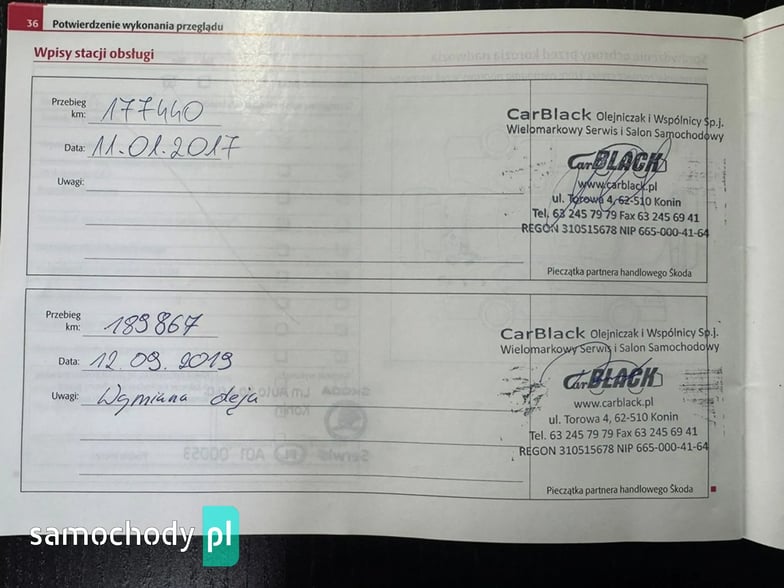 36 Potwierdzenie wykonania przeglądu
Wpisy stacji obsługi
Przebieg km: 177440
Data: 11.01.2017
Uwagi:
CarBlack Olejniczak i Wspólnicy Sp.j.
Wielomarkowy Serwis i Salon Samochodowy
CarBLACK
www.carblack.pl
ul. Torowa 4, 62-510 Konin
Tel. 63 245 79 79 Fax 63 245 69 41
REGON 310515678 NIP 665-000-41-64
Pieczątka partnera handlowego Škoda
Przebieg km: 189867
Data: 12.09.2019
Uwagi: Wymiana oleja
CarBlack Olejniczak i Wspólnicy Sp.j.
Wielomarkowy Serwis i Salon Samochodowy
CarBLACK
www.carblack.pl
ul. Torowa 4, 62-510 Konin
Tel. 63 245 79 79 Fax 63 245 69 41
REGON 310515678 NIP 665-000-41-64
Pieczątka partnera handlowego Škoda
samochody pl